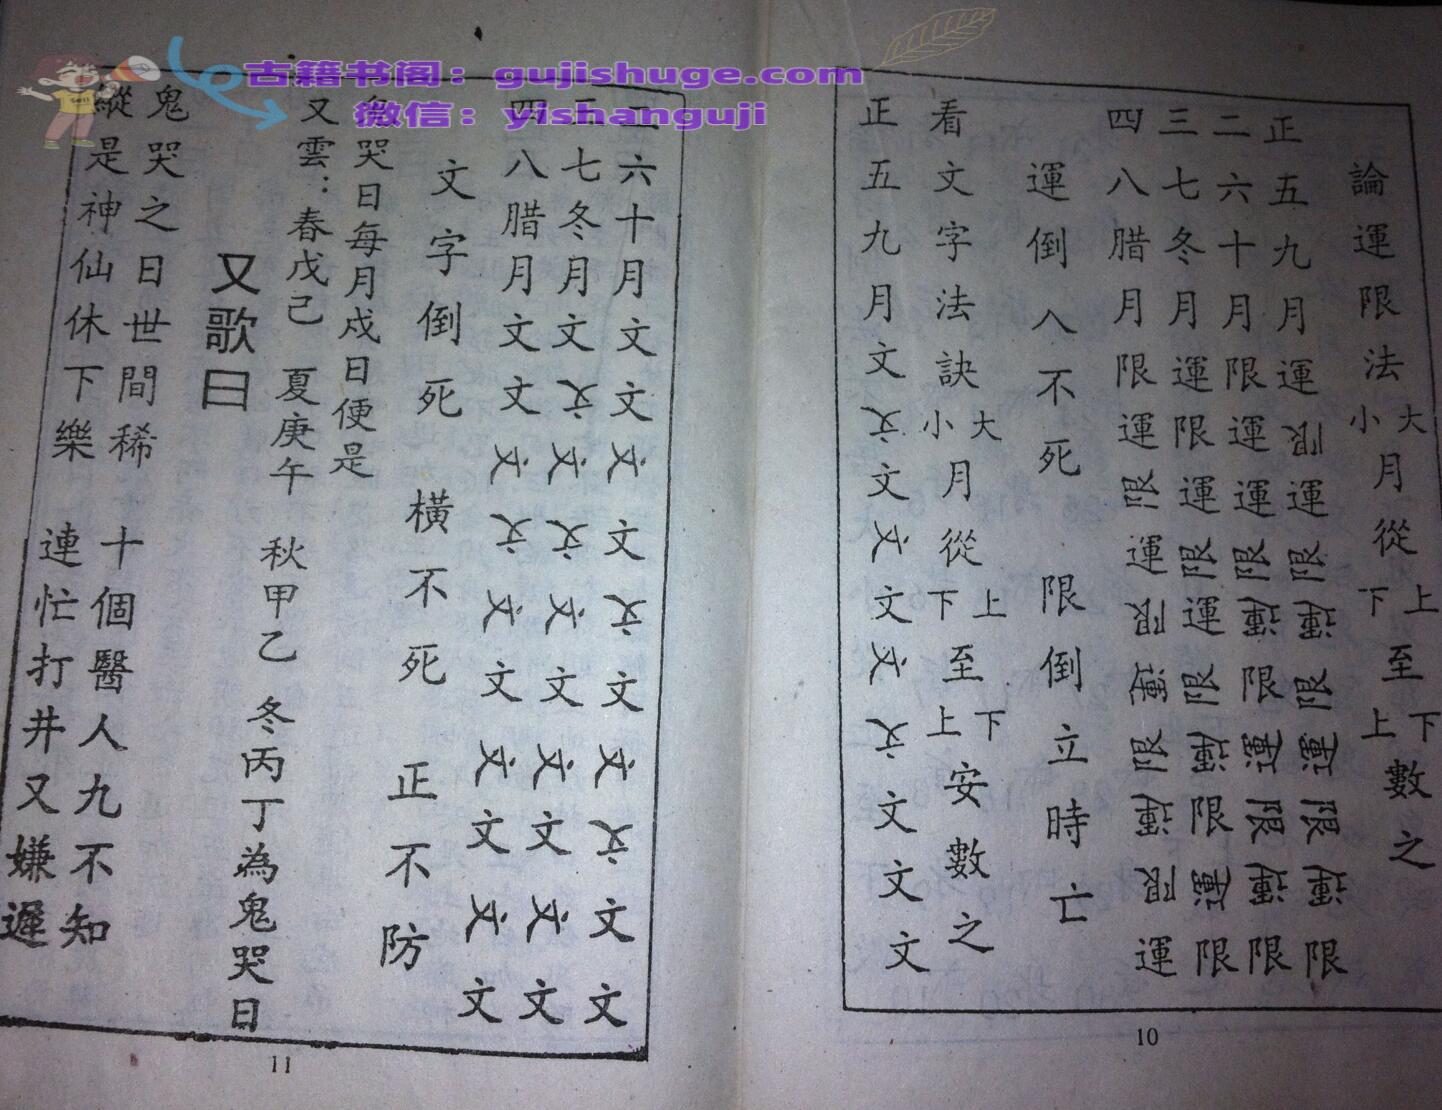 古籍书阁：gujishuge.com
微信：yishanguji
論運限法大小月從上下至下上數之
正五九月運限運限運限運限運限
二六十月限運運限運限運限運限
三七冬月運限運限運限運限運限
四八腊月限運限運限運限運限運
運倒人不死 限倒立時亡
看文字法訣大小月從上下至下上安數之
正五九月文文文文文文文文文文
10
二六十月文文文文文文文文文文
三七冬月文文文文文文文文文文
四八腊月文文文文文文文文文文
文字倒死 橫不死 正不防
鬼哭日每月戍日便是
又雲：春戊己 夏庚午 秋甲乙 冬丙丁為鬼哭日
又歌曰
鬼哭之日世間稀 十個醫人九不知
縱是神仙休下樂 連忙打井又嫌遲
11